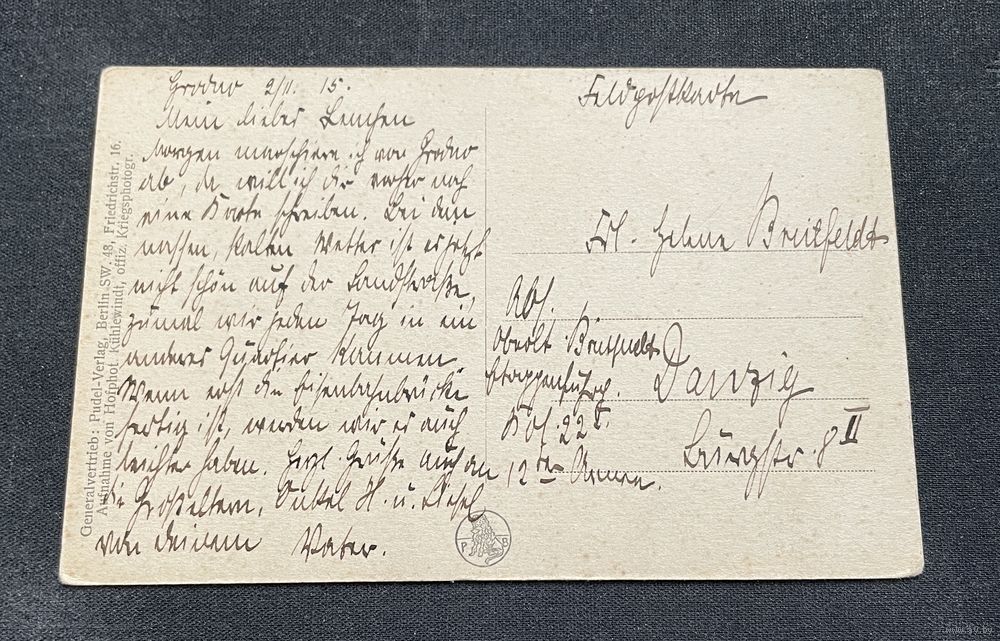 Grodno 2/11. 15.
Mein liebes Lenchen
Morgen marschiere ich von Grodno
ab, da will ich dir vorher noch
eine Karte schreiben. Bei dem
nassen, kalten Wetter ist es jetzt
nicht schön auf der Landstraße,
zumal wir jeden Tag in ein
anderes Quartier kommen.
Wenn erst die Eisenbahnbrücke
fertig ist, werden wir es auch
leichter haben. Herzl. Grüße auch an
die Großeltern, Onkel H. u. Liesel
von deinem Vater.
Generalvertrieb: Pudel-Verlag, Berlin SW. 48, Friedrichstr. 16.
Aufnahme von Hofphot. Kühlewindt, offiz. Kriegsphotogr.
P B
Feldpostkarte
Frl. Helene Breitfeldt
Danzig
Burgstr. 8 II
Abs.
Oberlt Breitfeldt
Kol. 22
12ten Armee.